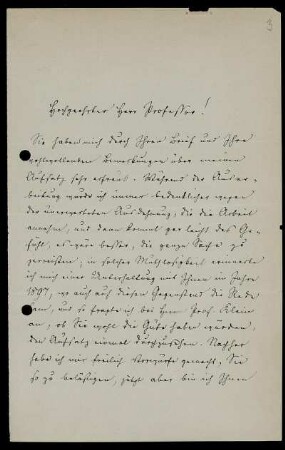 3
Hochgeehrter Herr Professor!
Sie haben mich durch Ihren Brief und Ihre
wohlwollenden Bemerkungen über meinen
Aufsatz sehr erfreut. Während der Ausar-
beitung wurde ich immer bedenklicher wegen
der unerwarteten Ausdehnung, die die Arbeit
annahm, und dann kommt gar leicht das Ge-
fühl, es wäre besser, die ganze Sache zu
zerreissen, in solcher Muthlosigkeit erinnerte
ich mich einer Unterhaltung mit Ihnen im Jahre
1897, wo auch auf diesen Gegenstand die Rede
kam, und so fragte ich bei Herrn Prof. Klein
an, ob Sie wohl die Güte haben würden,
den Aufsatz einmal durchzusehen. Nachher
habe ich mir freilich Vorwürfe gemacht, Sie
so zu belästigen, jetzt aber bin ich Ihnen